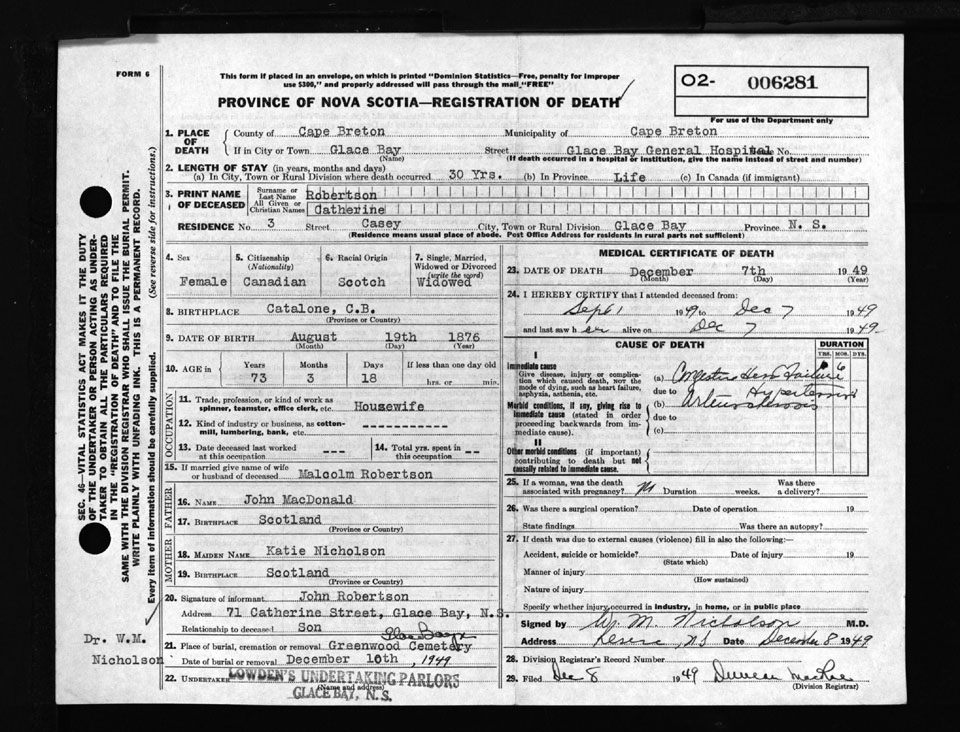 FORM 6
This form if placed in an envelope, on which is printed "Dominion Statistics—Free, penalty for improper
use $300," and properly addressed will pass through the mail "FREE"
PROVINCE OF NOVA SCOTIA—REGISTRATION OF DEATH
02- 006281
For use of the Department only
1. PLACE OF DEATH
County of Cape Breton Municipality of Cape Breton
If in City or Town Glace Bay Street Glace Bay General Hospital No.
(Name) (If death occurred in a hospital or institution, give the name instead of street and number)
2. LENGTH OF STAY (in years, months and days)
(a) In City, Town or Rural Division where death occurred 30 Yrs. (b) In Province Life (c) In Canada (if immigrant)
3. PRINT NAME OF DECEASED
Surname or Last Name Robertson
All Given or Christian Names Catherine
RESIDENCE No 3 Street Casey City, Town or Rural Division Glace Bay Province N. S.
(Residence means usual place of abode. Post Office Address for residents in rural parts not sufficient)
4. Sex 5. Citizenship (Nationality) 6. Racial Origin 7. Single, Married, Widowed or Divorced (write the word)
Female Canadian Scotch Widowed
8. BIRTHPLACE Catalone, C.B.
(Province or Country)
9. DATE OF BIRTH August 19th 1876
(Month) (Day) (Year)
10. AGE IN Years Months Days If less than one day old
73 3 18 hrs. or min.
OCCUPATION
11. Trade, profession, or kind of work as spinner, teamster, office clerk, etc. Housewife
12. Kind of industry or business, as cotton-mill, lumbering, bank, etc. - - - - - - - - - -
13. Date deceased last worked at this occupation - - - 14. Total yrs. spent in this occupation - - -
15. If married give name of wife or husband of deceased Malcolm Robertson
FATHER
16. NAME John MacDonald
17. BIRTHPLACE Scotland
(Province or Country)
MOTHER
18. MAIDEN NAME Katie Nicholson
19. BIRTHPLACE Scotland
(Province or Country)
20. Signature of informant John Robertson
Address 71 Catherine Street, Glace Bay, N.S.
Relationship to deceased Son
Glace Bay
21. Place of burial, cremation or removal Greenwood Cemetery
Date of burial or removal December 10th, 1949
22. UNDERTAKER LOWDEN'S UNDERTAKING PARLORS
(Name and address)
GLACE BAY, N.S.
MEDICAL CERTIFICATE OF DEATH
23. DATE OF DEATH December 7th 1949
(Month) (Day) (Year)
24. I HEREBY CERTIFY that I attended deceased from:
Sept 1 1949 to Dec 7 1949
and last saw her alive on Dec 7 1949
CAUSE OF DEATH DURATION
YRS. MOS. DYS.
I
Immediate cause
Give disease, injury or complication which caused death, not the mode of dying, such as heart failure, asphyxia, asthenia, etc.
(a) Congestive Heart Failure 6
due to Hypertension
Morbid conditions, if any, giving rise to immediate cause (stated in order proceeding backwards from immediate cause).
(b) Arteriosclerosis
due to
(c)
II
Other morbid conditions (if important) contributing to death but not causally related to immediate cause.
25. If a woman, was the death associated with pregnancy? No Duration weeks. Was there a delivery?
26. Was there a surgical operation? Date of operation 19
State findings Was there an autopsy?
27. If death was due to external causes (violence) fill in also the following:—
Accident, suicide or homicide? Date of injury 19
(State which)
Manner of injury
(How sustained)
Nature of injury
Specify whether injury occurred in industry, in home, or in public place
Signed by W. M. Nicholson M.D.
Address Reserve, N.S Date December 8 1949
28. Division Registrar's Record Number
29. Filed Dec 8 1949 Duncan MacRae
(Division Registrar)
SEC. 46—VITAL STATISTICS ACT MAKES IT THE DUTY
OF THE UNDERTAKER OR PERSON ACTING AS UNDER-
TAKER TO OBTAIN ALL THE PARTICULARS REQUIRED
IN THE "REGISTRATION OF DEATH" AND TO FILE THE
SAME WITH THE DIVISION REGISTRAR WHO SHALL ISSUE THE BURIAL PERMIT.
WRITE PLAINLY WITH UNFADING INK. THIS IS A PERMANENT RECORD.
Every item of information should be carefully supplied. (See reverse side for instructions.)
Dr. W.M.
Nicholson